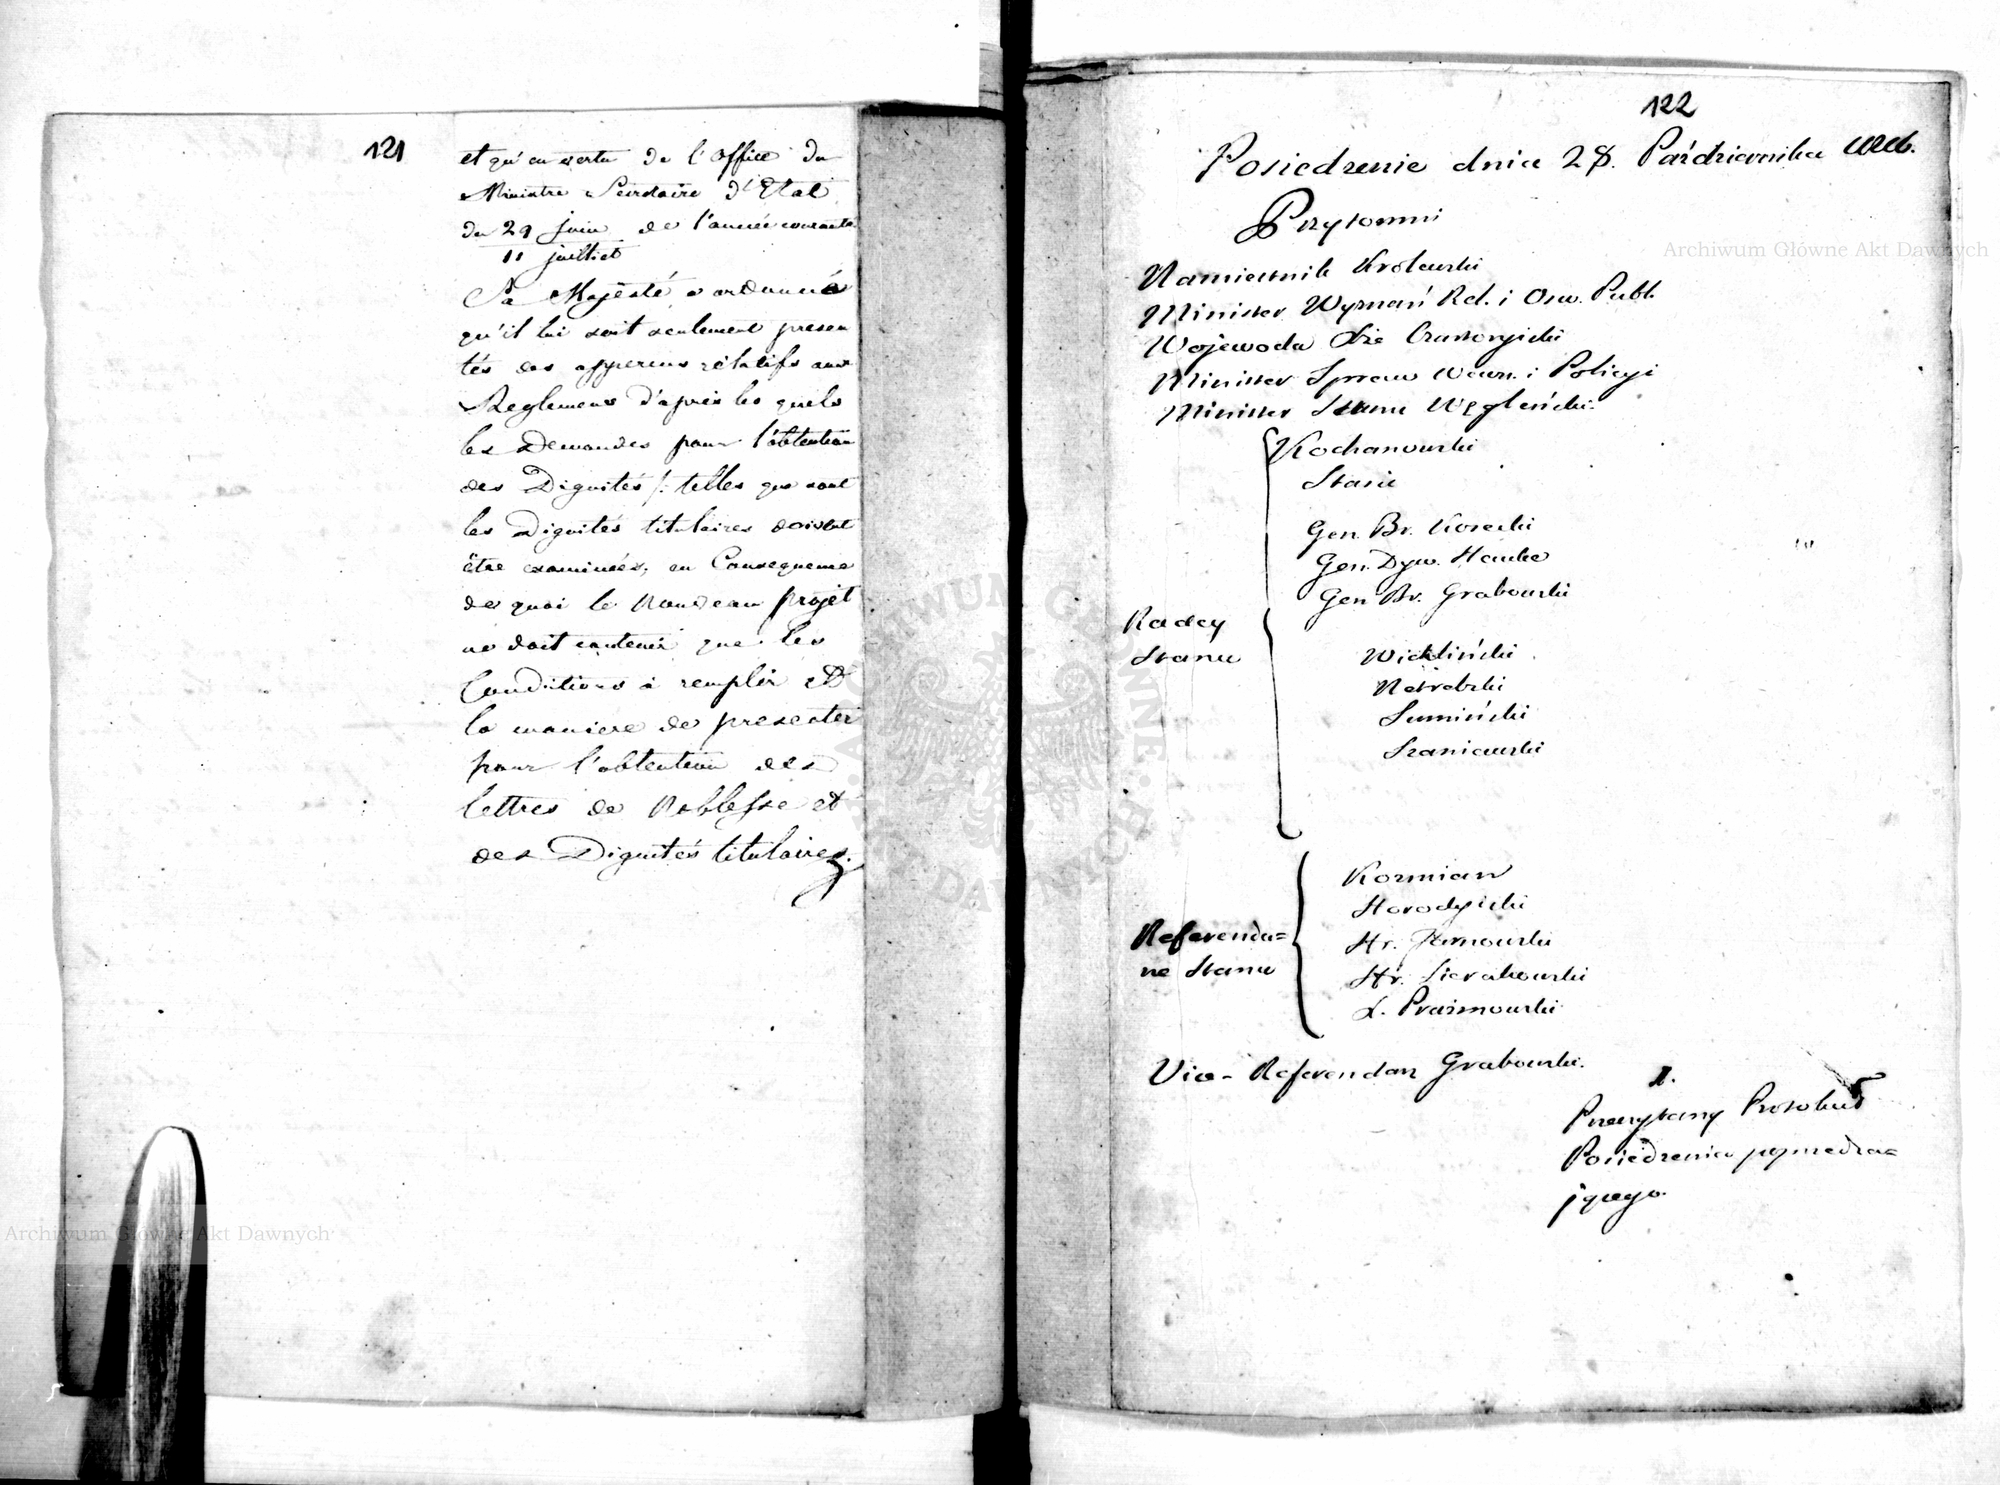 121
et qu'en vertu de l'office du
Ministre Secretaire d'Etat
du 29 juin de l'année courante
11 juillet
Sa Majesté a ordonné
qu'il lui soit seulement presen
tés des apperçus rélatifs aux
Reglemens d'après les quels
les Demandes pour l'obtention
des Dignités /: telles que sont
les Dignités titulaires doivent
être examinées, en Consequence
de quoi le nouveau projet
ne doit contenir que les
Conditions à remplir et
la maniere de presenter
pour l'obtention des
lettres de Noblesse et
des Dignités titulaires.
122
Posiedzenie dnia 28. Października
Przytomni
Namiestnik Krolewski
Minister Wyznań Rel. i Osw. Publ.
Wojewoda Xże Czartoryiski
Minister Spraw Wewn. i Policyi
Minister Stanu Węgleński
Kochanowski
Stasic
Gen. Br. Kosecki
Gen. Dyw. Hauke
Gen Br. Grabowski
Radcy
Stanu
Wichliński
Nakwaski
Sumiński
Szaniawski
Kozmian
Horodyski
Hr. Tarnowski
Hr. Sierakowski
X. Prażmowski
Referenda=
rze Stanu
Vice-Referendarz Grabowski.
1.
Przeczytany Protokuł
Posiedzenia poprzedza=
jącego.
Archiwum Główne Akt Dawnych
Archiwum Główne Akt Dawnych
ARCHIWUM GŁÓWNE AKT DAWNYCH